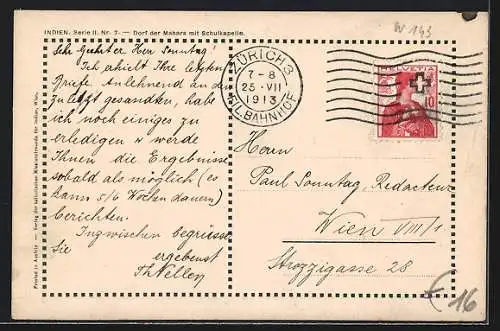 INDIEN. Serie II. Nr. 7. — Dorf der Mahars mit Schulkapelle.
W 143
Sehr Geehrter Herr Sonntag!
Ich erhielt Ihre letzten
Briefe Anlehnend an den
zuletzt gesandten, habe
ich noch einiges zu
erledigen u werde
Ihnen die Ergebnisse
sobald als möglich (es
kann 5/6 Wochen dauern)
berichten.
Inzwischen begrüsse
Sie ergebenst
ZÜRICH 3
7-8
25·VII
1913
FIL. BAHNHOF
HELVETIA
10
Herrn
Paul Sonntag, Redacteur
Wien VIII/1
Strozzigasse 28
€16
Printed in Austria